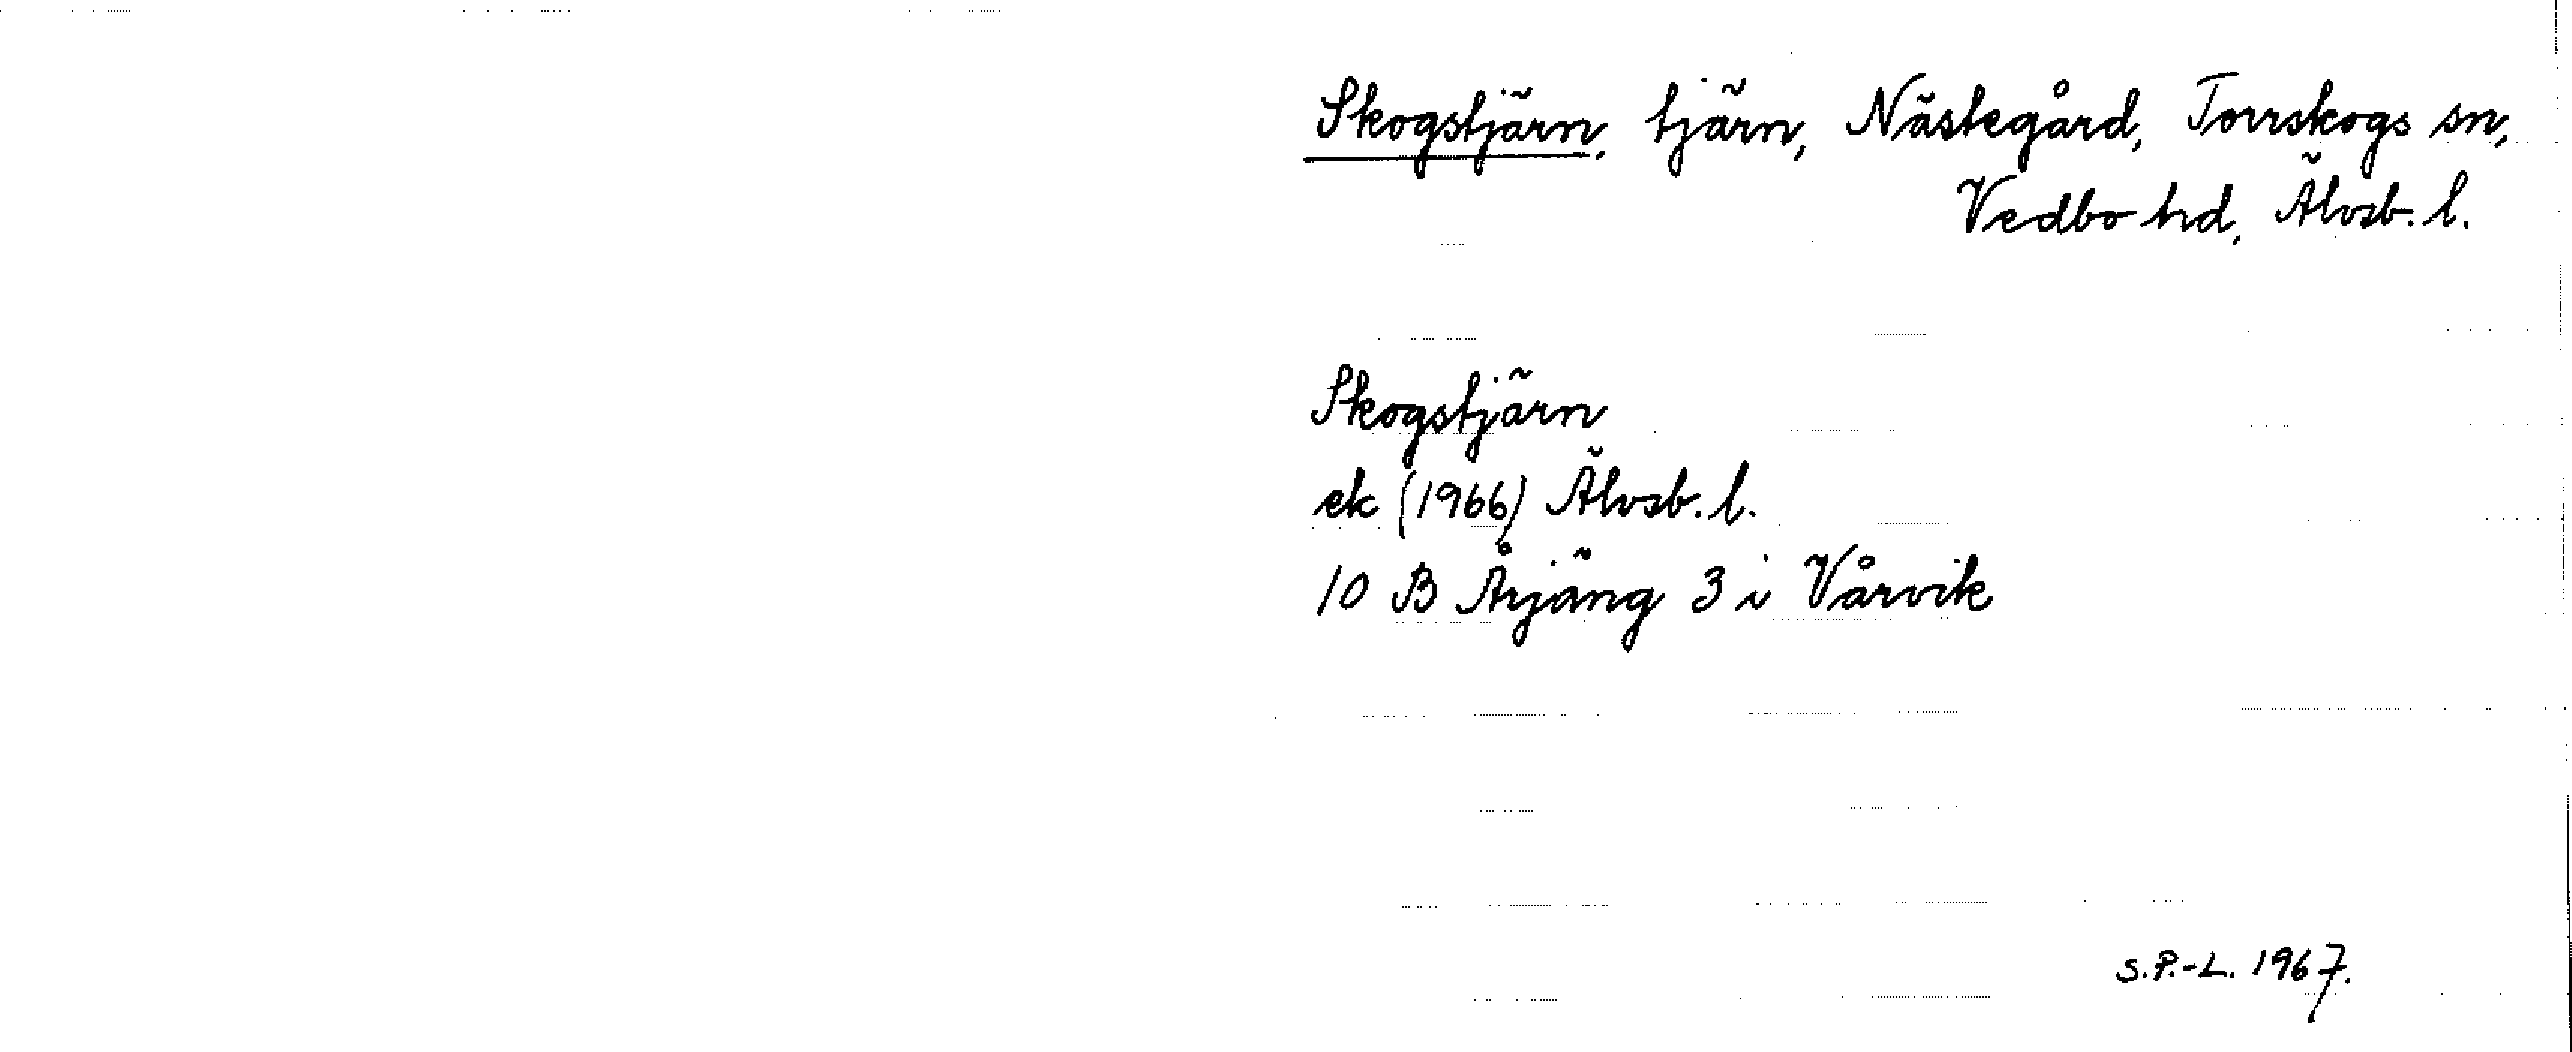 Skogstjärn, tjärn, Nästegård, Torrskogs sn,
Vedbo hd, Älvsb. l.
Skogstjärn
ek (1966) Älvsb. l.
10 B Årjäng 3 i Vårvik
S.P.-L. 1967.